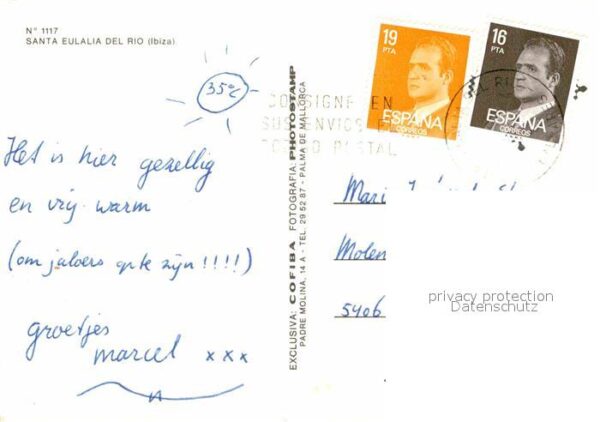 Nº 1117
SANTA EULALIA DEL RIO (Ibiza)
35º
Het is hier gezellig
en vrij warm
(om jaloers op te zijn !!!!)
groetjes
marcel xxx
EXCLUSIVA: COFIBA. FOTOGRAFIA: PHOTOSTAMP
PADRE MOLINA, 14 A - TEL. 29 52 87 - PALMA DE MALLORCA
19
PTA
ESPAÑA
CORREOS
16
PTA
ESPAÑA
CORREOS
CONSIGNE EN
SUS ENVIOS EL
POSTAL
Mari
Molen
5406
privacy protection
Datenschutz